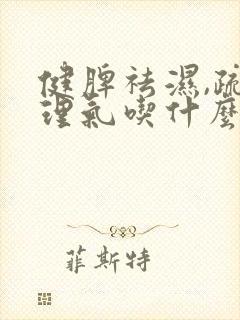 健脾祛濕,疏
理氣喫什麼
菲斯特